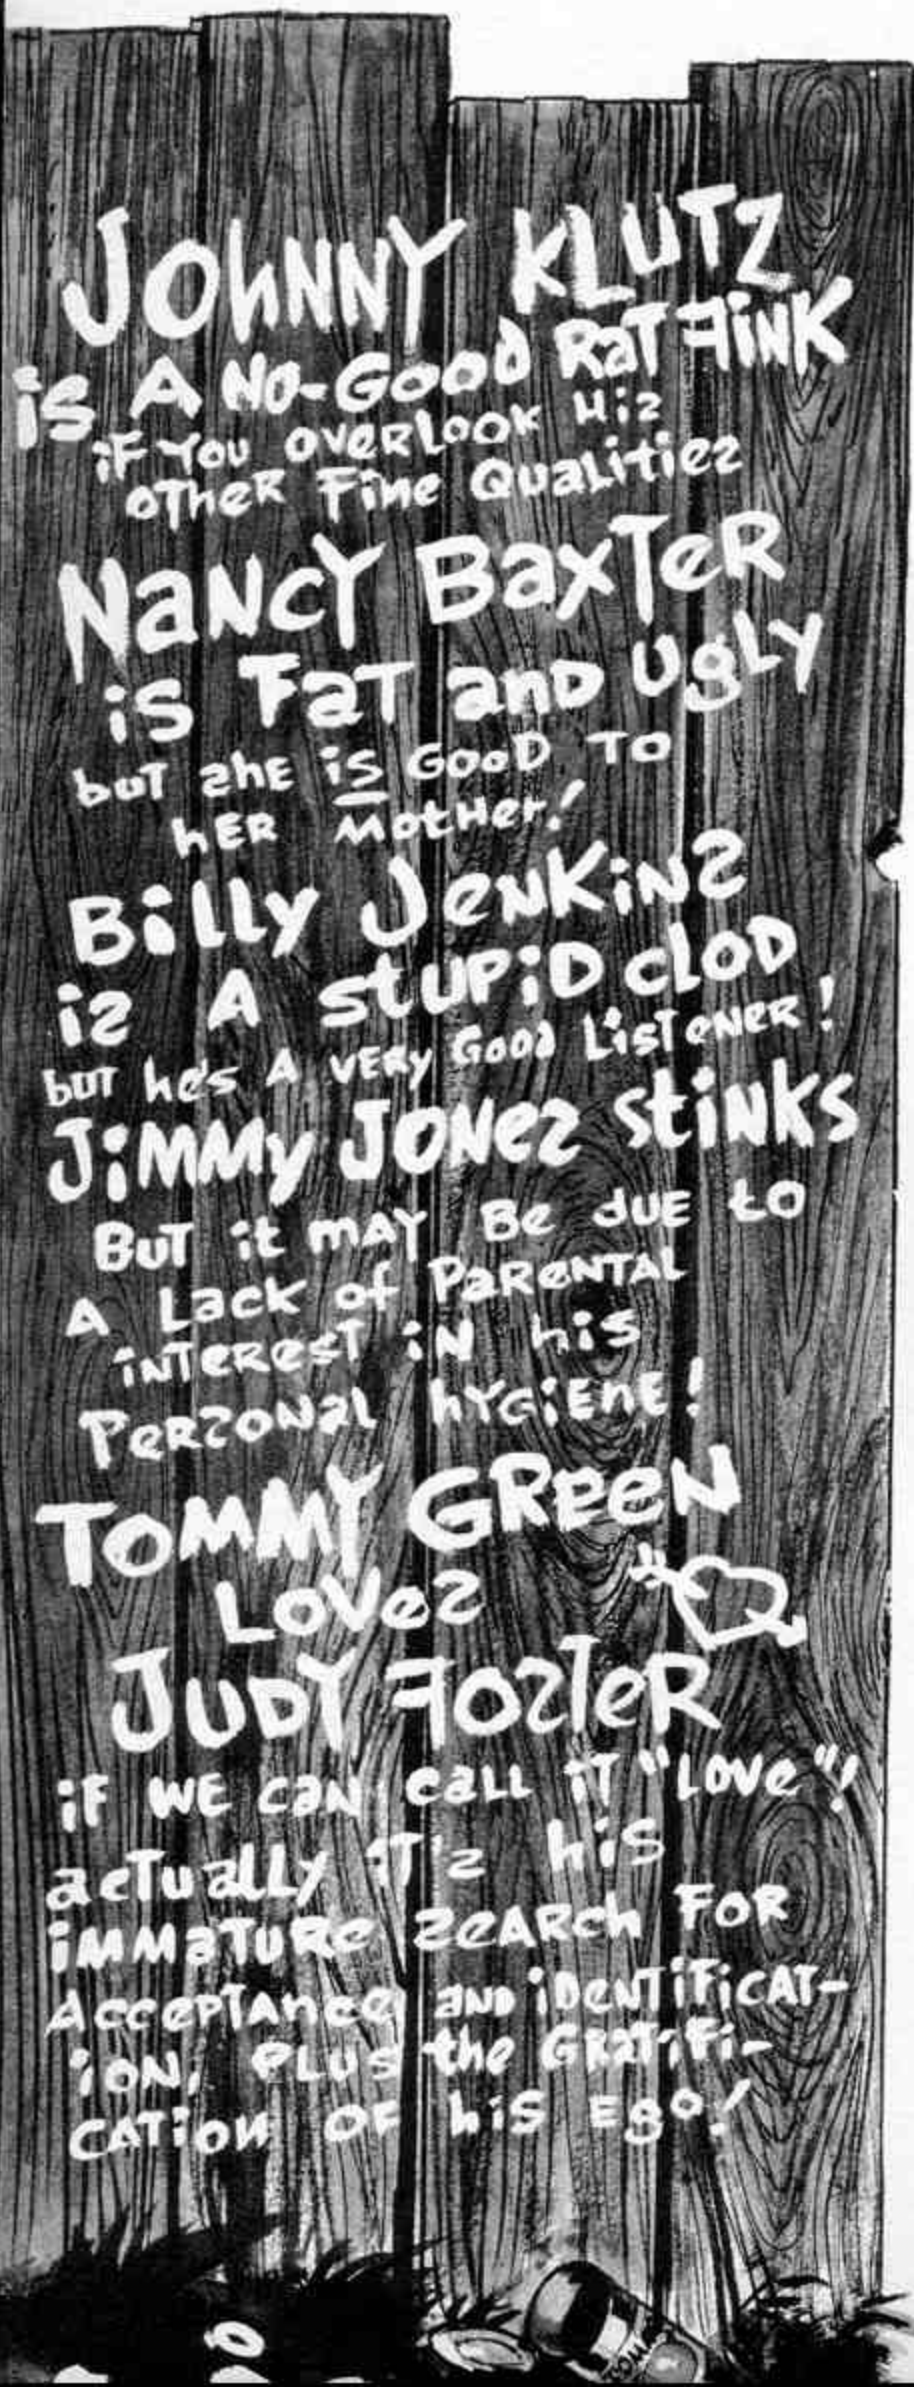 JOHNNY KLUTZ
iS A NO-GOOD RAT FiNK
iF YOU OVERLOOK HiS
OTHER FiNe QUALitieS
NaNcY BaxTeR
iS FaT anD UgLY
buT ShE iS GOOD TO
hER MOtHer!
BiLLy JeNKiNS
iS A StUPiD CLOD
buT he's A VERy GOOd LiSTeNER!
JiMMy JONeS StiNKS
BuT it mAY Be dUE tO
A Lack of PaReNTAL
iNTeReST iN hiS
PeRSONaL hYGiEnE!
TOMMY GReeN
LOVeS
JUDY FOSTeR
iF WE caN caLL iT "LOVe"!
acTuaLLy iT'S hiS
iMMaTURe SeARch FOR
AccePTAnce aND iDeNTiFiCAT-
iON, PLUS the GRaTiFi-
CATiON OF hiS EgO!